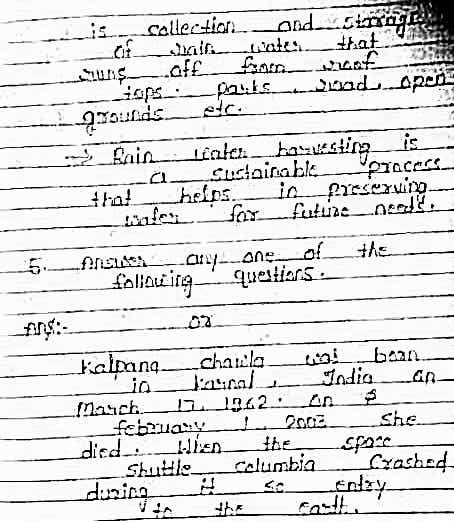 is collection and storage
of rain water that
runs off from roof
tops. parks, road, open
grounds etc.
→ Rain water harvesting is
a sustainable process
that helps in preserving
water for future needs.
5. Answer any one of the
following questions.
Ans:- or
Kalpana chawla was born
in karnal, India on
March 17, 1962. on
february 1, 2003 she
died. When the space
shuttle columbia Crashed
during it se entry
to the earth.